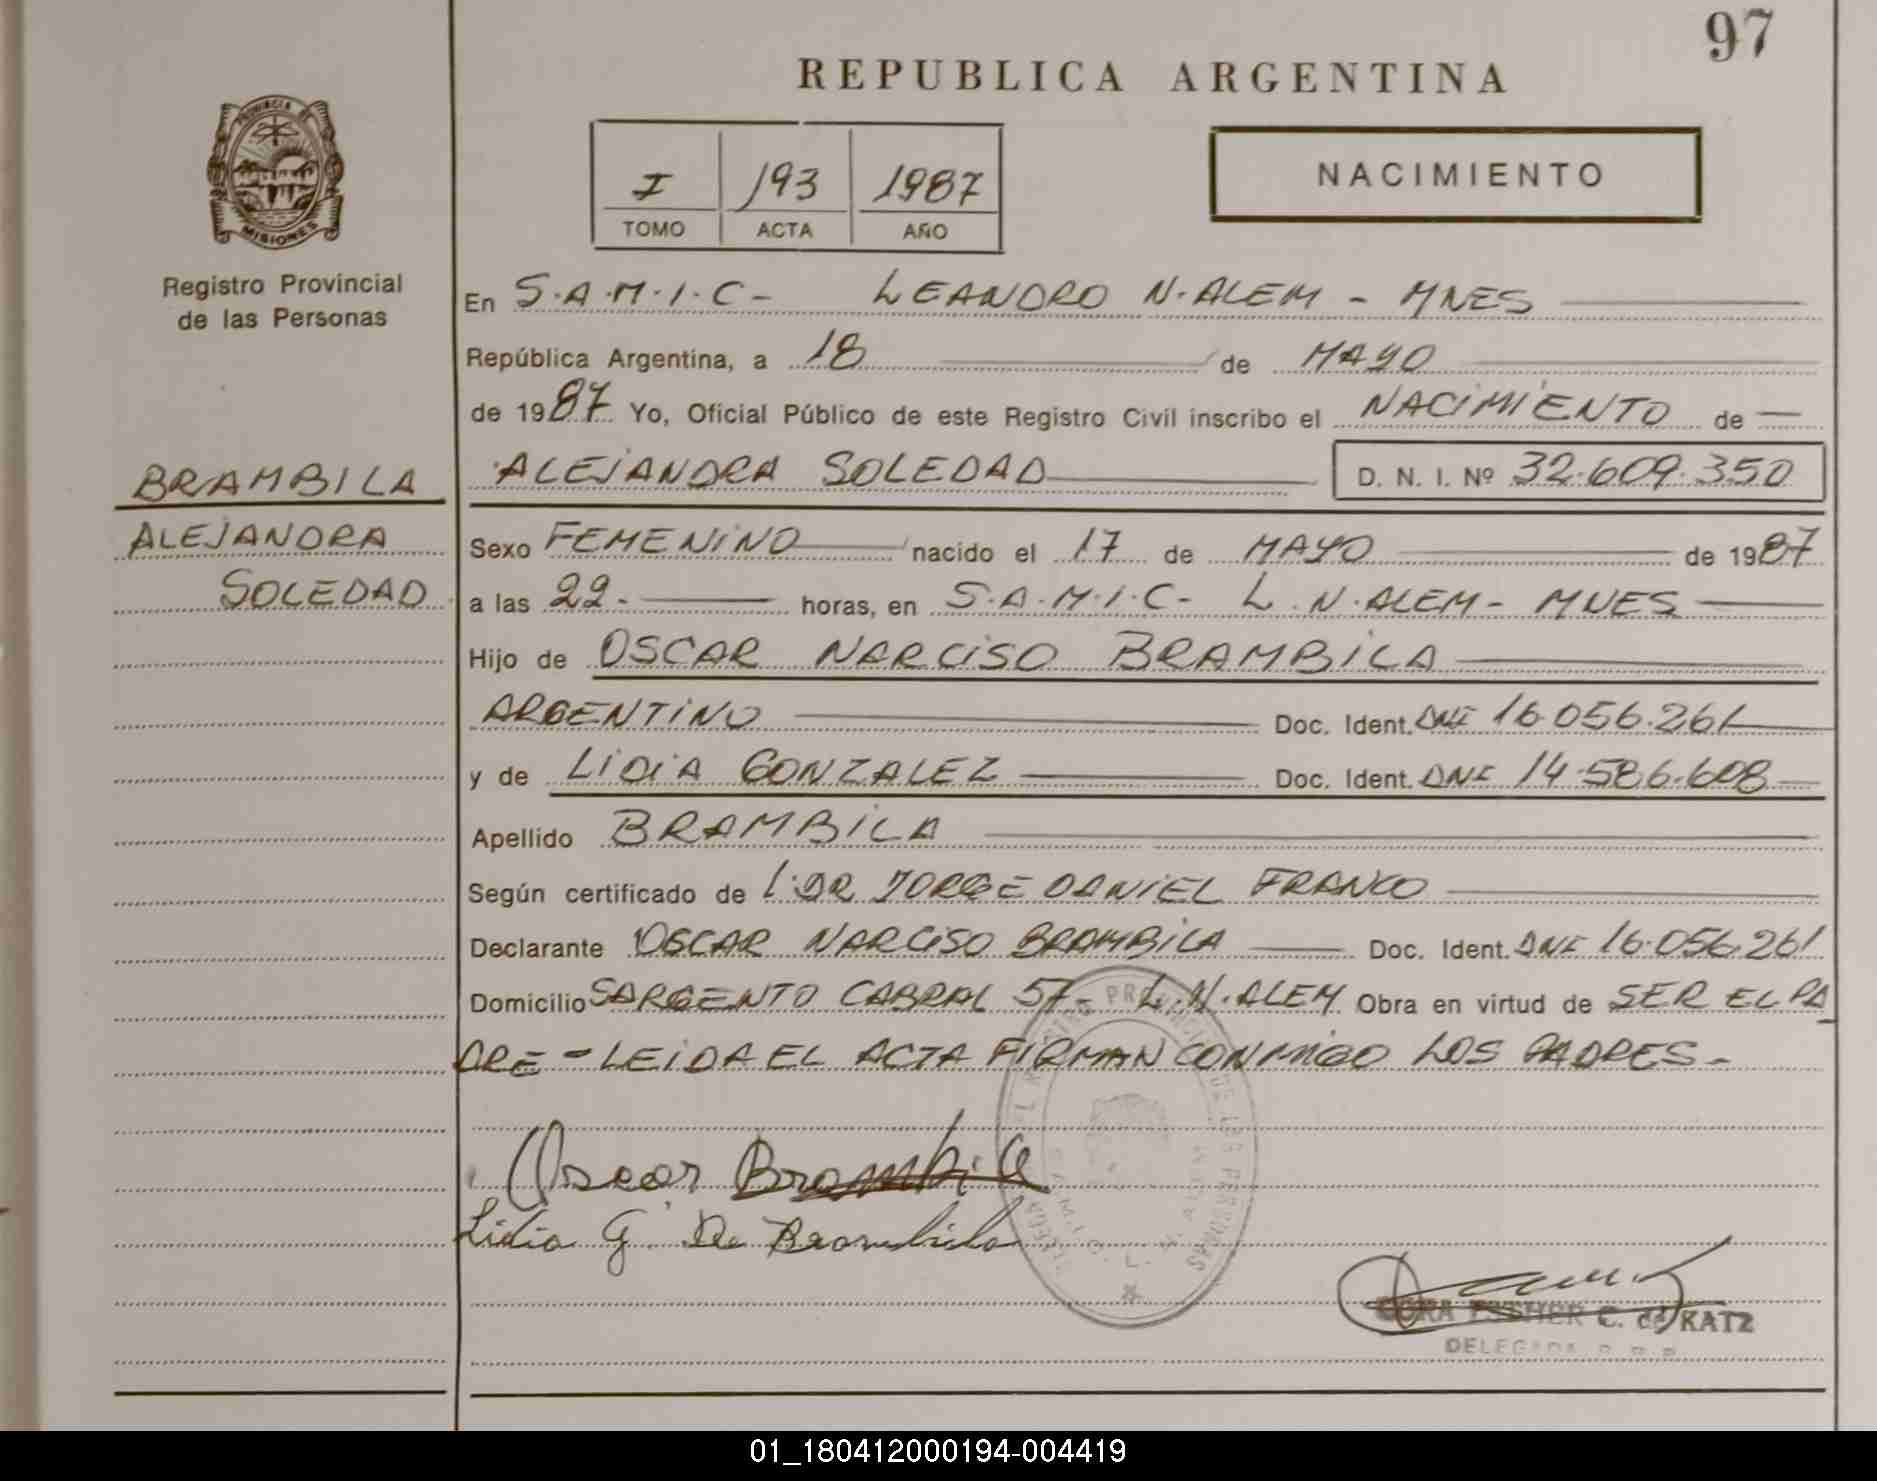 97
REPUBLICA ARGENTINA
PROVINCIA DE
MISIONES
I 193 1987
TOMO ACTA AÑO
NACIMIENTO
Registro Provincial
de las Personas
En S.A.M.I.C- LEANDRO N.ALEM - MNES
República Argentina, a 18 de MAYO
de 1987 Yo, Oficial Público de este Registro Civil inscribo el NACIMIENTO de
BRAMBILA
ALEJANDRA SOLEDAD D. N. I. Nº 32.609.350
ALEJANDRA
SOLEDAD
Sexo FEMENINO nacido el 17 de MAYO de 1987
a las 22- horas, en S.A.M.I.C- L.N.ALEM- MNES
Hijo de OSCAR NARCISO BRAMBILA
ARGENTINO Doc. Ident. DNI 16.056.261
y de LIDIA GONZALEZ Doc. Ident. DNI 14.586.608
Apellido BRAMBILA
Según certificado de DR JORGE DANIEL FRANCO
Declarante OSCAR NARCISO BRAMBILA Doc. Ident. DNI 16.056.261
Domicilio SARGENTO CABRAL 57- L.N.ALEM Obra en virtud de SER EL PA
DRE - LEIDA EL ACTA FIRMAN CONMIGO LOS PADRES-
Oscar Brambila
Lidia G. De Brambila
C. de KATZ
DELEGADA
01_180412000194-004419